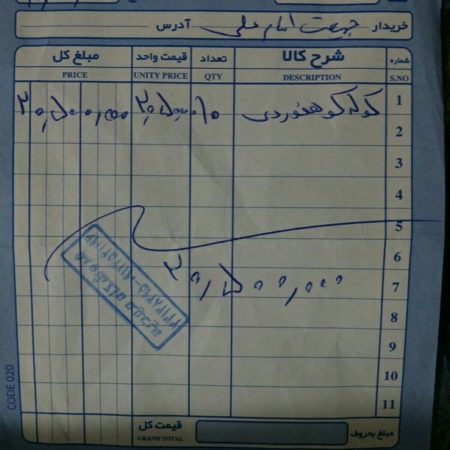 خریدار جمعیت امام علی آدرس
شماره شرح کالا تعداد قیمت واحد مبلغ کل
S.NO DESCRIPTION QTY UNITY PRICE PRICE
1 کوله کوهنوردی ۱۰ ۲,۰۵۰,۰۰۰ ۲۰,۵۰۰,۰۰۰
2
3
4
5
6
۲۰,۵۰۰,۰۰۰
7
8
9
10
11
مبلغ بحروف قیمت کل
GRAND TOTAL
CODE 020